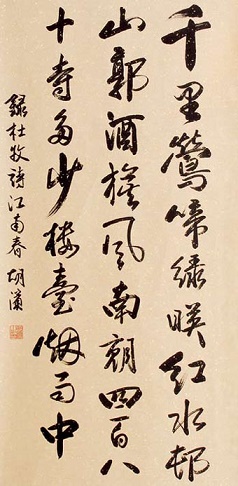 千里鶯啼綠映紅水邨
山郭酒旗風南朝四百八
十寺多少樓臺烟雨中
錄杜牧詩江南春胡濱